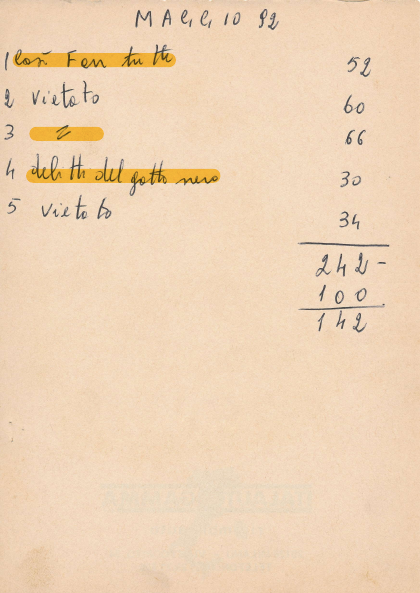 MAGGIO 92
1 Così Fan tutte 52
2 Vietato 60
3 = 66
4 delitti del gatto nero 30
5 Vietato 34
242 -
100
142